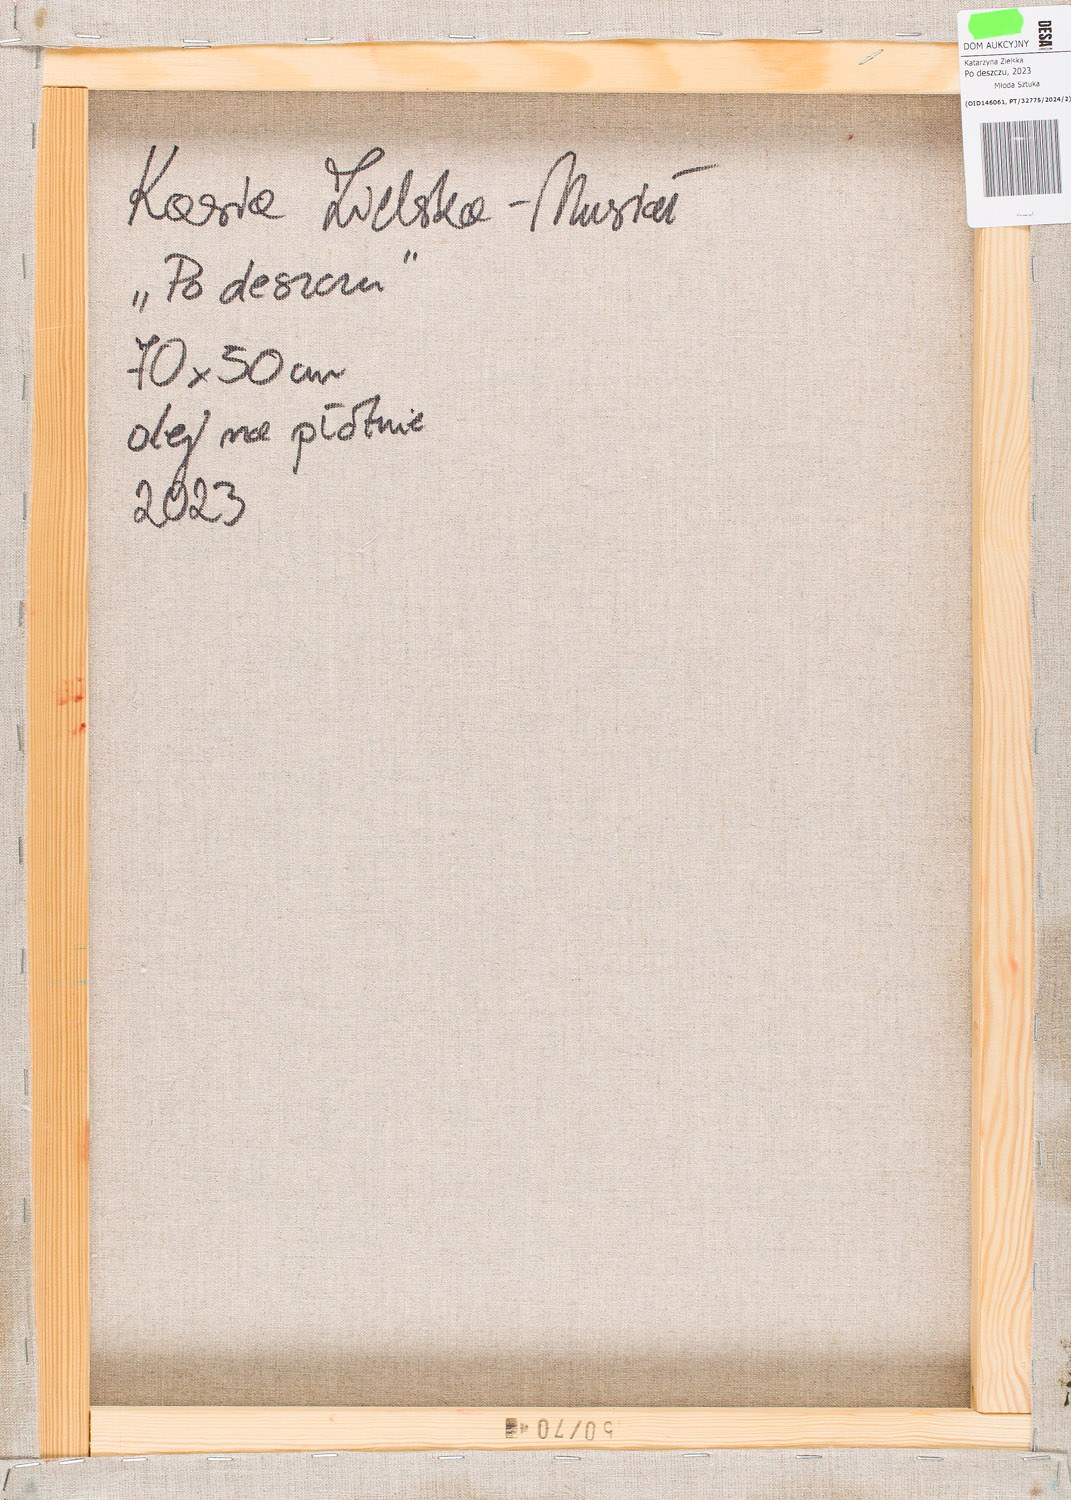 DOM AUKCYJNY
DESA
Katarzyna Zielska
Po deszczu, 2023
Młoda Sztuka
(OID146061, PT/32775/2024/2)
Kasia Zielska-Musiał
„Po deszczu”
70x50cm
olej na płótnie
2023
50/70